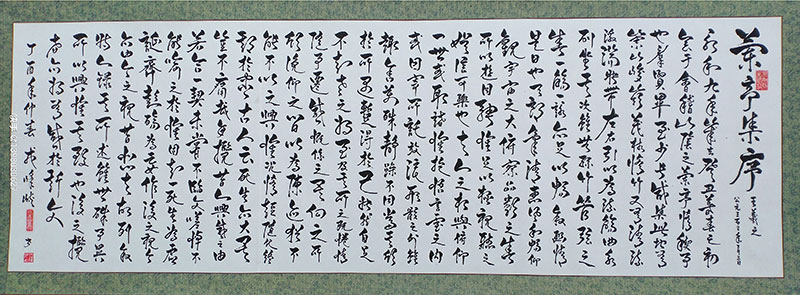 蘭亭集序
王羲之
永和九年歲在癸丑暮春之初
會于會稽山陰之蘭亭脩禊事
也群賢畢至少長咸集此地有
崇山峻嶺茂林脩竹又有清流
激湍映帶左右引以爲流觴曲水
列坐其次雖無絲竹管弦之
盛一觴一詠亦足以暢敘幽情
是日也天朗氣清惠風和暢仰
觀宇宙之大俯察品類之盛
所以遊目騁懷足以極視聽之
娛信可樂也夫人之相與俯仰
一世或取諸懷抱悟言一室之內
或因寄所託放浪形骸之外雖
趣舍萬殊靜躁不同當其欣
於所遇暫得於己快然自足
不知老之將至及其所之既惓情
隨事遷感慨係之矣向之所
欣俛仰之間以爲陳迹猶不
能不以之興懷況脩短隨化終
期於盡古人云死生亦大矣
豈不痛哉每攬昔人興感之由
若合一契未嘗不臨文嗟悼不
能喻之於懷固知一死生爲虛
誕齊彭殤爲妄作後之視今
亦由今之視昔悲夫故列敘
時人錄其所述雖世殊事異
所以興懷其致一也後之攬
者亦將有感於斯文
丁酉年仲春